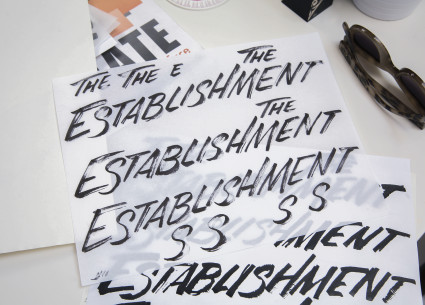 ATE
THE THE E THE
ESTABLISHMENT
THE
ESTABLISHMENT
ESTABLISHMENT
S S
S S
MENT
ESTABLISHMENT